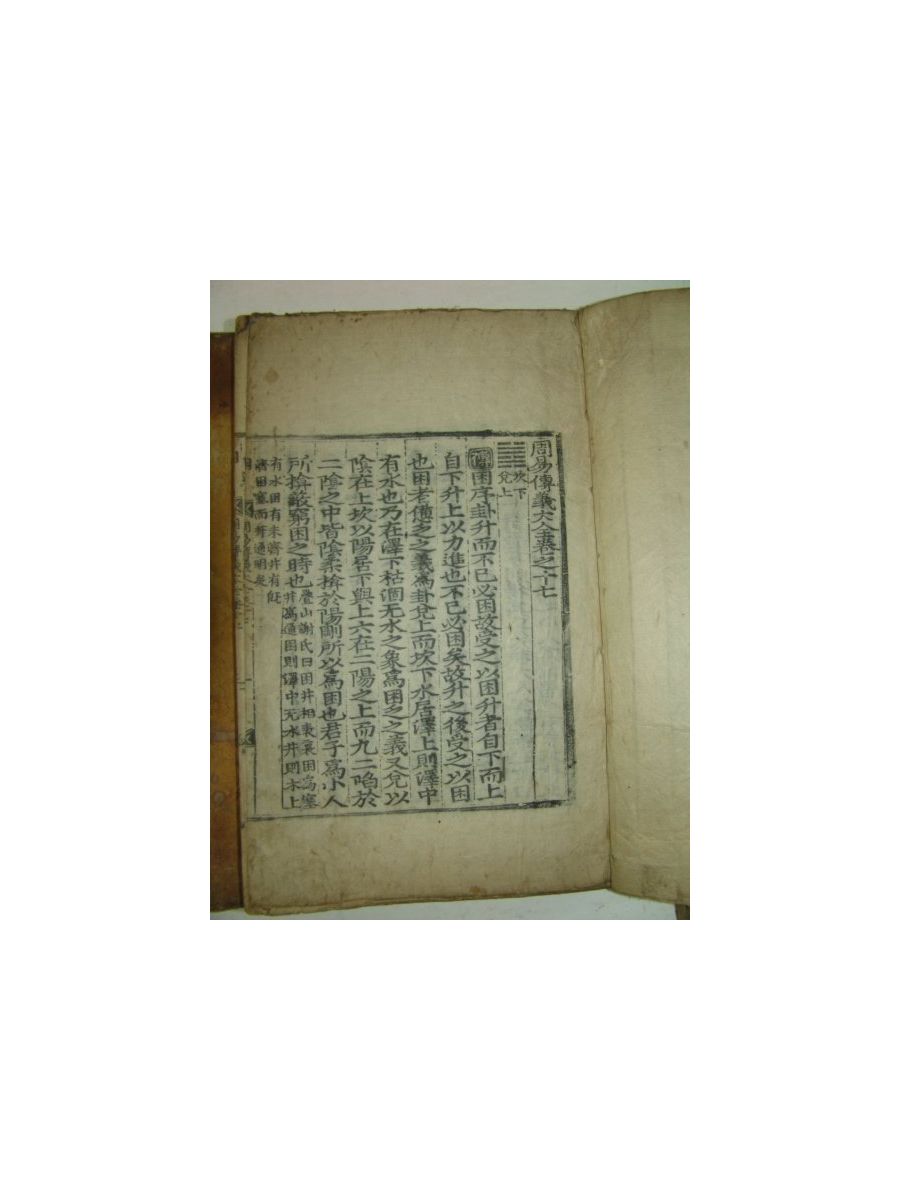 周易傳義大全卷之十七
坎下
兌上
傳困序卦升而不已必困故受之以困升者自下而上
自下升上以力進也不已必困矣故升之後受之以困
也困者憊乏之義爲卦兌上而坎下水居澤上則澤中
有水也乃在澤下枯涸无水之象爲困乏之義又兌以
陰在上坎以陽居下與上六在二陽之上而九二陷於
二陰之中皆陰柔揜於陽剛所以爲困也君子爲小人
所揜蔽窮困之時也
疊山謝氏曰困井相表裏困爲塞
井爲通困則澤中无水井則木上
有水困有未濟井有旣
濟困塞而井通明矣